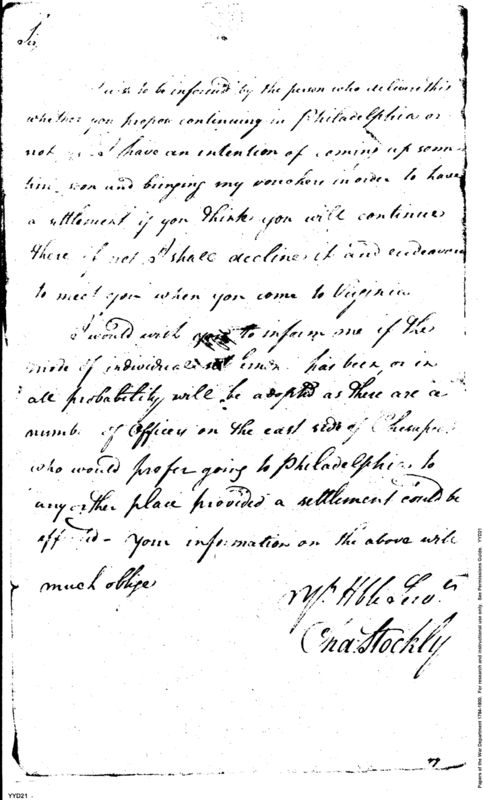 Sir
wish to be informed by the person who delivers this
whether you propose continuing in Philadelphia or
not as I have an intention of coming up some
time soon and bringing my vouchers in order to have
a settlement if you think you will continue
there if not I shall decline it and endeavour
to meet you when you come to Virginia
I would wish you to inform me if the
mode of individual has been or in
all probability will be adopted as there are a
number of Officers on the east side of Chesapea
who would prefer going to Philadelphia to
any other place provided a settlement could be
effected - Your information on the above will
much oblige
Yr. Hble Serv.t
Cha Stockly
YYD21
Papers of the War Department 1784-1800. For research and instructional use only. See Permissions Guide. YYD21